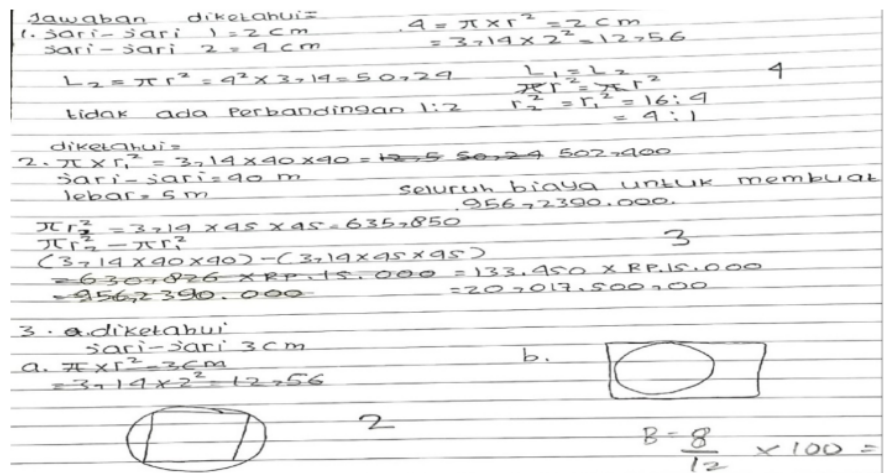 Jawaban diketahui=
1. Jari-Jari 1=2cm
Jari-Jari 2=4cm
.4=πxr²=2cm
=3,14x2²=12,56
L₂=πr²=4²x3,14=50,24
L₁=L₂
πr²=πr²
r₂²=r₁²=16:4
=4:1
4
tidak ada Perbandingan 1:2
diketahui=
2.πxr₁²=3,14x40x40=12,5 50,24 502,400
Jari-Jari=40 m
lebar=5m
seluruh biaya untuk membuat
.956,2390.000.
πr₂²=3,14x45x45=635,850
πr₂²-πr₁²
3
(3,14x40x40)-(3,14x45x45)
=630,826 xRP.15.000 =133.450 xRP.15.000
=956,2390.000 =20,017.500,00
3. a.diketahui
Jari-Jari 3cm
a. πxr²=3cm
=3,14x2²=12,56
b.
2
B=8/12 x100=